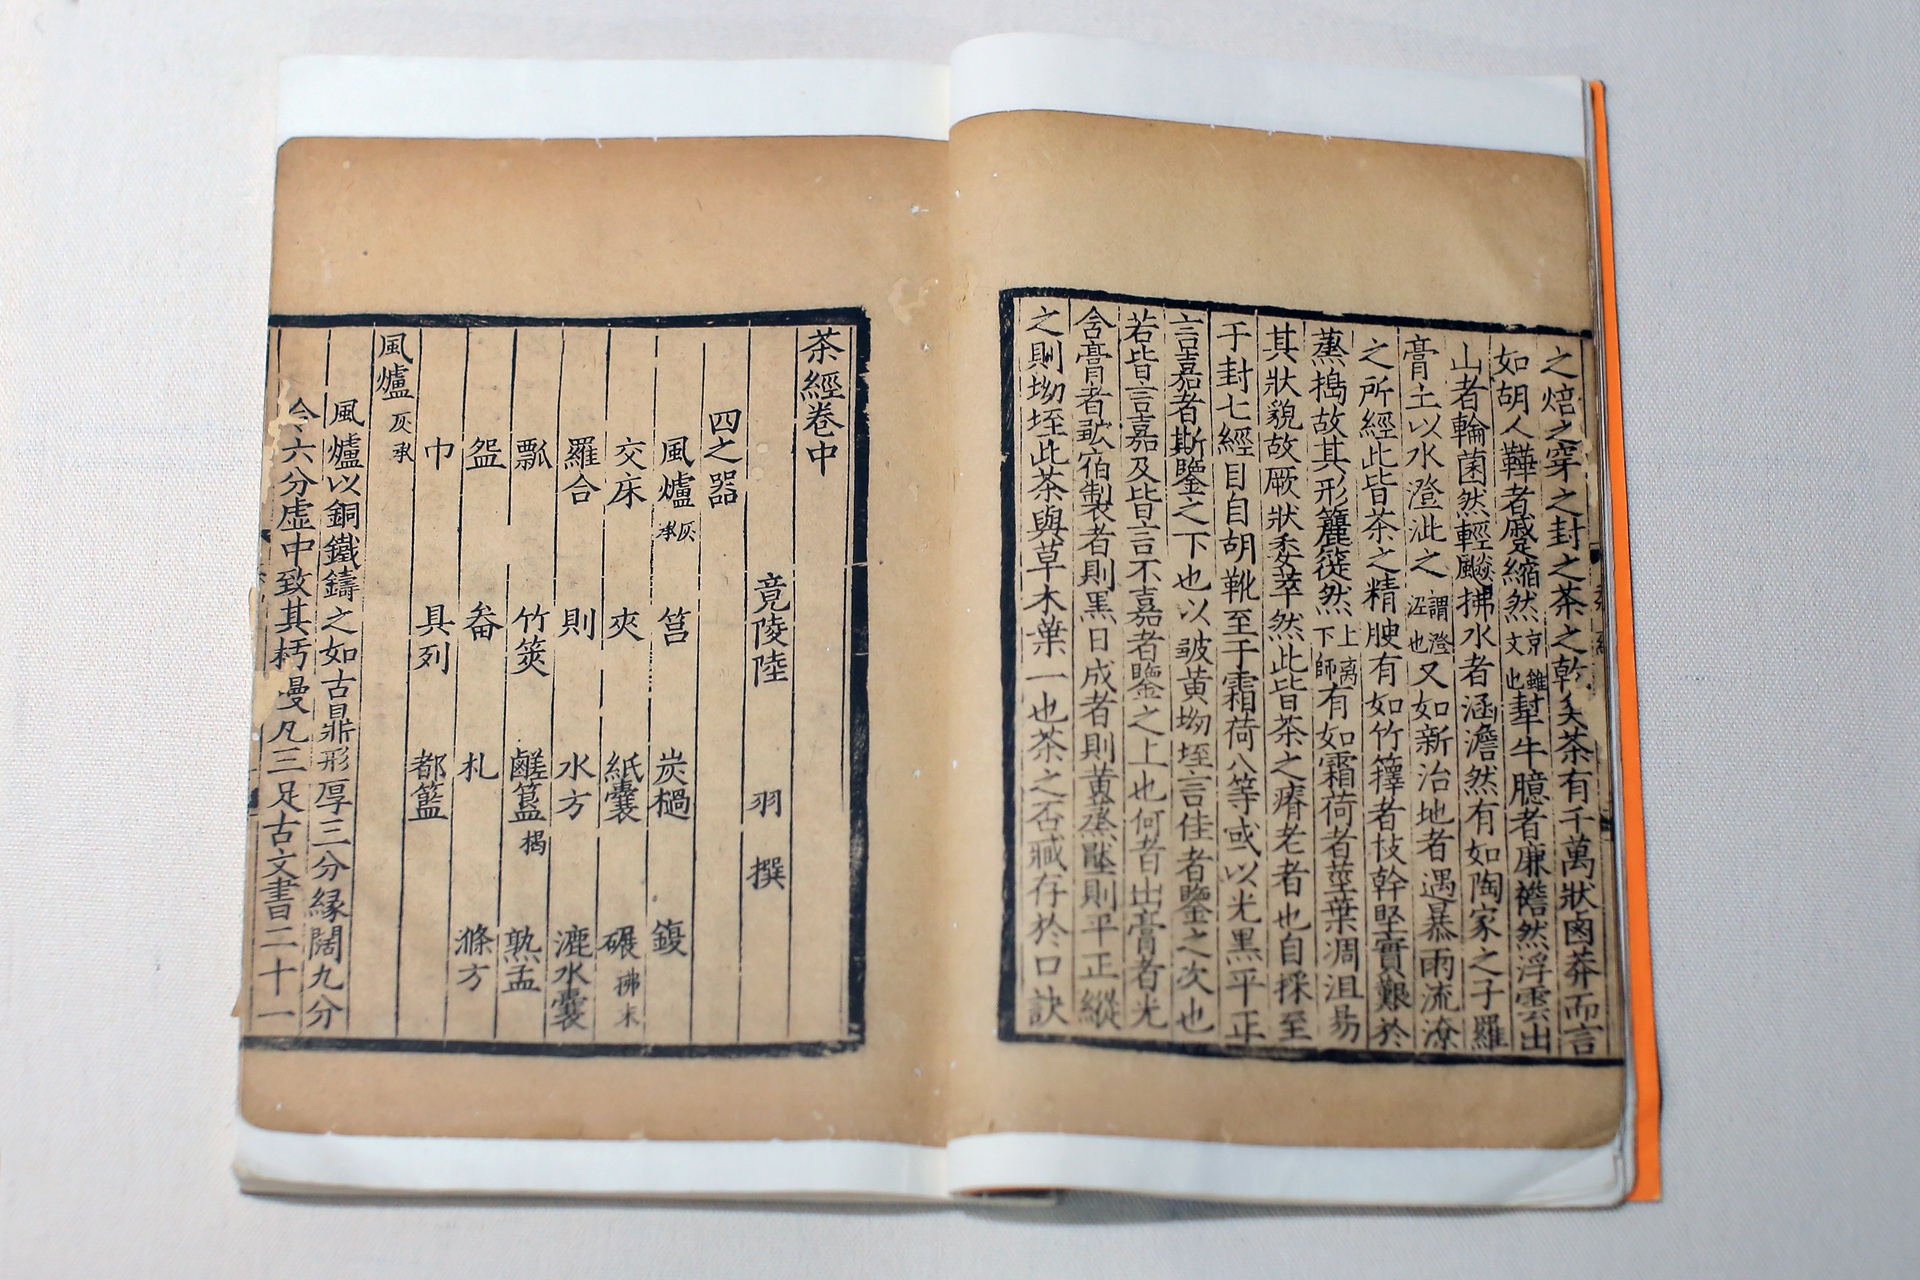 之焙之穿之封之茶之乾矣茶有千萬狀鹵莽而言
如胡人鞾者蹙縮然京錐文也犎牛臆者廉襜然浮雲出
山者輪菌然輕飈拂水者涵澹然有如陶家之子羅
膏土以水澄泚之謂澄泥也又如新治地者遇暴雨流潦
之所經此皆茶之精腴有如竹籜者枝幹堅實艱於
蒸搗故其形籭簁然上离下師有如霜荷者莖葉凋沮易
其狀貌故厥狀委萃然此皆茶之瘠老者也自採至
于封七經目自胡靴至于霜荷八等或以光黑平正
言嘉者斯鑒之下也以皺黃坳垤言佳者鑒之次也
若皆言嘉及皆言不嘉者鑒之上也何者出膏者光
含膏者皺宿製者則黑日成者則黃蒸壓則平正縱
之則坳垤此茶與草木葉一也茶之否臧存於口訣
茶經卷中
竟陵陸 羽 撰
四之器
風爐灰承 筥 炭檛 鍑
交床 夾 紙囊 碾拂末
羅合 則 水方 漉水囊
瓢 竹筴 鹺簋揭 熟盂
盌 畚 札 滌方
巾 具列 都籃
風爐灰承
風爐以銅鐵鑄之如古鼎形厚三分緣闊九分
令六分虛中致其杇墁凡三足古文書二十一